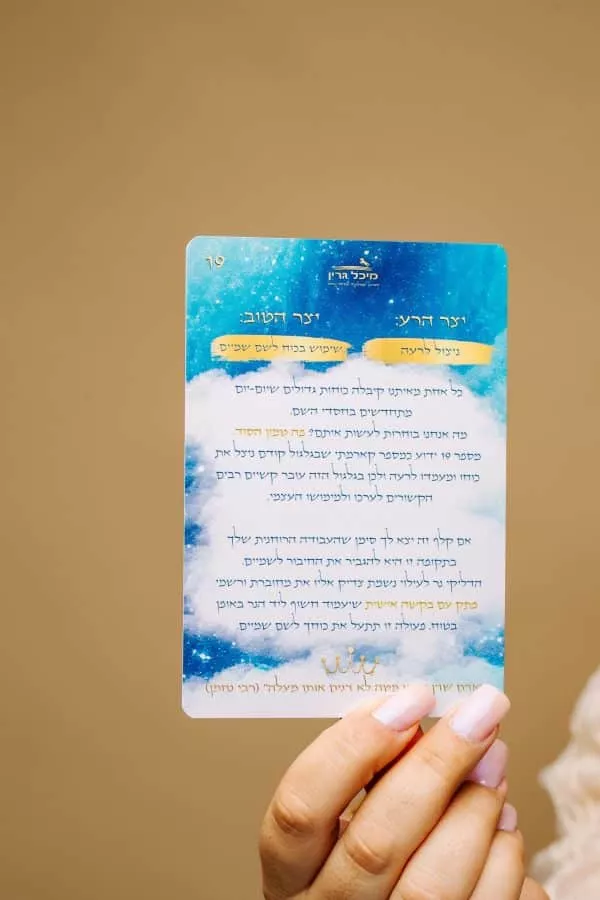 19
מיכל גרין
יצר הרע: יצר הטוב:
ניצול לרעה שימוש בכוח לשם שמיים
כל אחת מאיתנו קיבלה כוחות גדולים שיום-יום
מתחדשים בחסדי השם.
מה אנחנו בוחרות לעשות איתם? פה טמון הסוד
מספר 19 ידוע כמספר קארמתי שבגלגול קודם ניצל את
כוחו ומעמדו לרעה ולכן בגלגול הזה עובר קשיים רבים
הקשורים לערכו ולמימושו העצמי.
אם קלף זה יצא לך סימן שהעבודה הרוחנית שלך
בתקופה זו היא להגביר את החיבור לשמיים.
הדליקי נר לעילוי נשמת צדיק אליו את מחוברת ורשמי
פתק עם בקשה אישית שיעמוד חשוף ליד הנר באופן
בטוח. פעולה זו תתעל את כוחך לשם שמיים.
לא רנים אותו מעלה" (רבי נחמן)